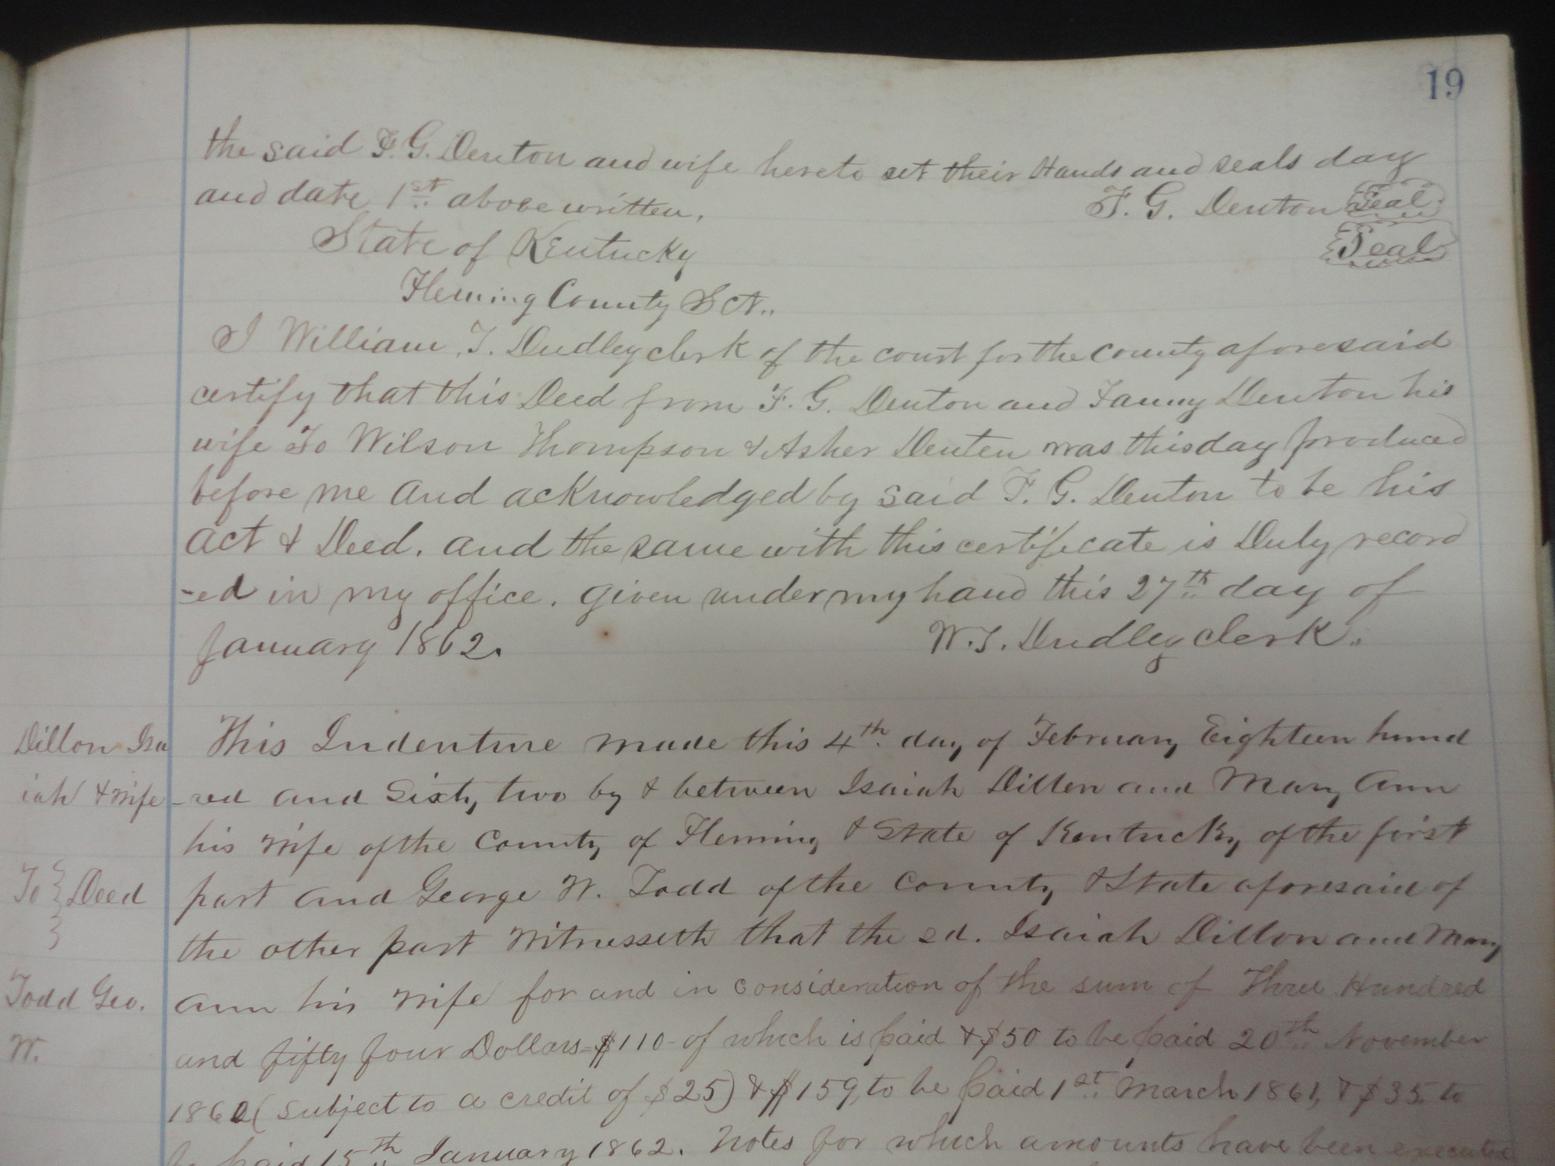 19
the said F. G. Denton and wife hereto set their Hands and seals day
and date 1st above written. F. G. Denton Seal
Seal
State of Kentucky
Fleming County Sct..
I William T. Dudley clerk of the court for the county aforesaid
certify that this Deed from F. G. Denton and Fanny Denton his
wife To Wilson Thompson & Asher Denten was this day produced
before me and acknowledged by said F. G. Denton to be his
act & Deed. and the same with this certificate is Duly record
-ed in my office. given under my hand this 27th day of
January 1862.
W. T. Dudley clerk.
Dillon Isa
iah & wife
To } Deed
Todd Geo.
W.
This Indenture made this 4th day of February Eighteen hund
-red and Sixty two by & between Isaiah Dillon and Mary Ann
his wife of the County of Fleming & State of Kentucky of the first
part and George W. Todd of the County & State aforesaid of
the other part Witnesseth that the sd. Isaiah Dillon and Mary
Ann his wife for and in consideration of the sum of Three Hundred
and fifty four Dollars $110 of which is paid & $50 to be paid 20th November
1860 (subject to a credit of $25) & $159, to be paid 1st March 1861, & $35 to
be paid 15th January 1862. Notes for which amounts have been executed